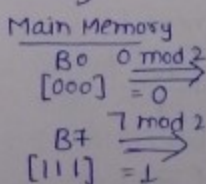 Main Memory
B0 0 mod 2
[000] = 0
B7 7 mod 2
[111] = 1